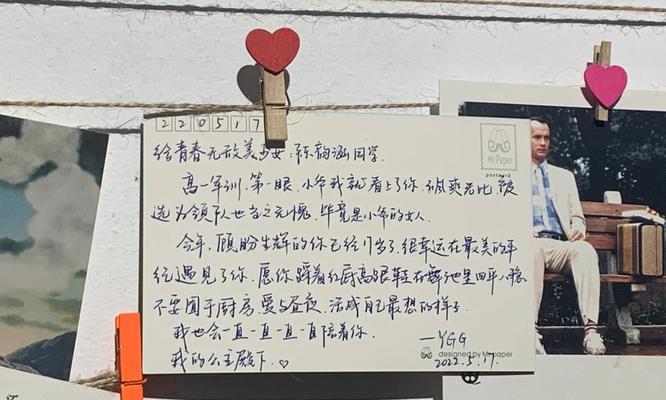 220517
给青春无敌美少女：陈韵涵同学
高一军训，第一眼，小爷我就看上了你，飒爽无比，被
选为领队人也当之无愧，毕竟是小爷的女人
今年，顾盼生辉的你已经17岁了，很幸运在最美的年
纪遇见了你，愿你踩着红底高跟鞋在舞池里回
不要囿于厨房，爱与昼夜，活成自己最想的样子
我也会一直一直一直一直陪着你
我的公主殿下.♡
—YGG
2022.5.17.
Mr.Paper
postcard
designed by Mr.paper